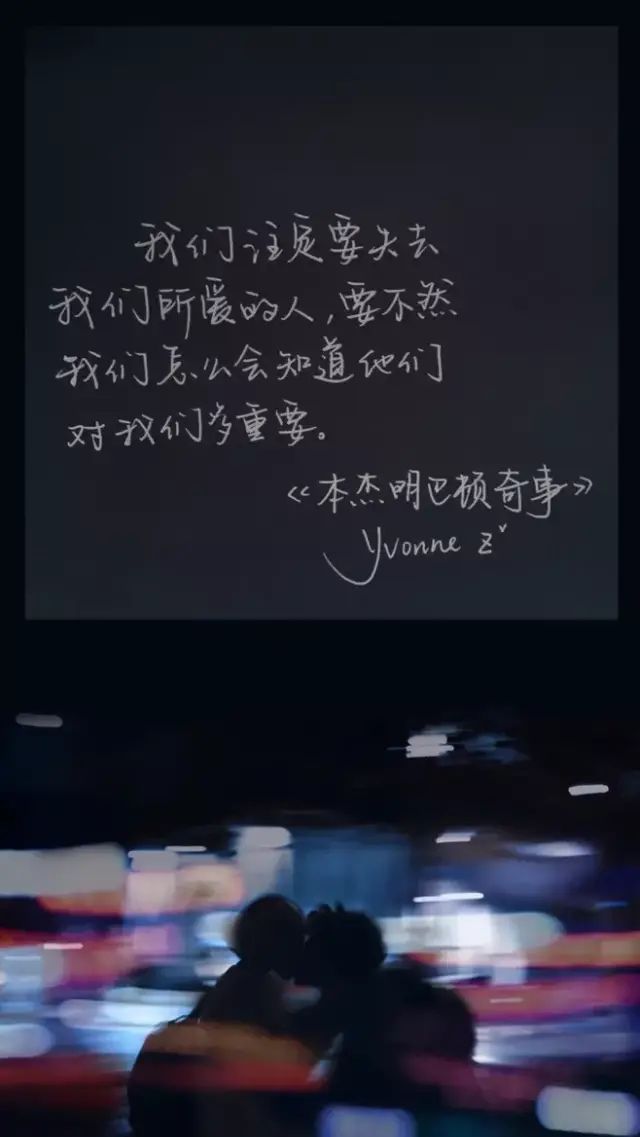 我们注定要失去
我们所爱的人,要不然
我们怎么会知道他们
对我们多重要。
《本杰明巴顿奇事》
Yvonne Z